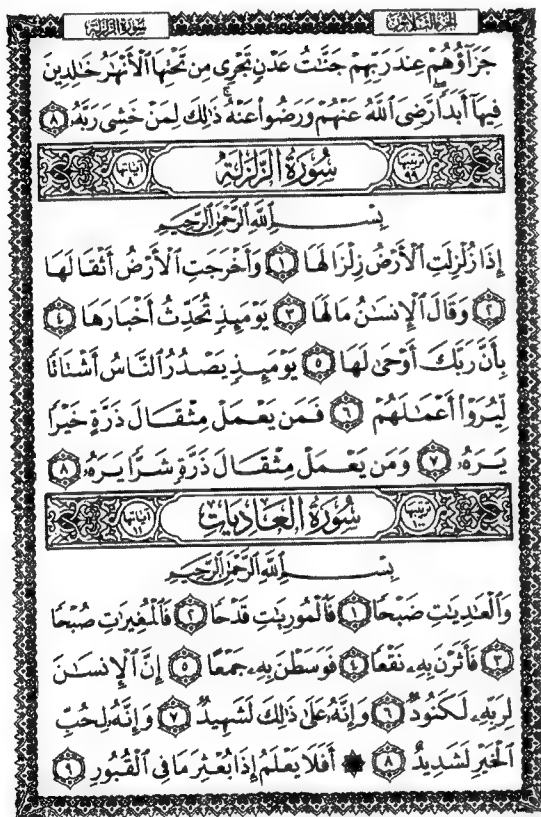 الجزء الثلاثون
سورة الزلزلة
جَزَآؤُهُمْ عِندَ رَبِّهِمْ جَنَّـٰتُ عَدْنٍ تَجْرِى مِن تَحْتِهَا ٱلْأَنْهَـٰرُ خَـٰلِدِينَ
فِيهَآ أَبَدًا ۖ رَّضِىَ ٱللَّهُ عَنْهُمْ وَرَضُوا۟ عَنْهُ ۚ ذَٰلِكَ لِمَنْ خَشِىَ رَبَّهُۥ ٨
ترتيبها ٩٩ سُورَةُ الزَّلْزَلَةِ آياتها ٨
بِسْمِ ٱللَّهِ ٱلرَّحْمَـٰنِ ٱلرَّحِيمِ
إِذَا زُلْزِلَتِ ٱلْأَرْضُ زِلْزَالَهَا ١ وَأَخْرَجَتِ ٱلْأَرْضُ أَثْقَالَهَا
٢ وَقَالَ ٱلْإِنسَـٰنُ مَا لَهَا ٣ يَوْمَئِذٍ تُحَدِّثُ أَخْبَارَهَا ٤
بِأَنَّ رَبَّكَ أَوْحَىٰ لَهَا ٥ يَوْمَئِذٍ يَصْدُرُ ٱلنَّاسُ أَشْتَاتًا
لِّيُرَوْا۟ أَعْمَـٰلَهُمْ ٦ فَمَن يَعْمَلْ مِثْقَالَ ذَرَّةٍ خَيْرًا
يَرَهُۥ ٧ وَمَن يَعْمَلْ مِثْقَالَ ذَرَّةٍ شَرًّا يَرَهُۥ ٨
ترتيبها ١٠٠ سُورَةُ العَادِيَاتِ آياتها ١١
بِسْمِ ٱللَّهِ ٱلرَّحْمَـٰنِ ٱلرَّحِيمِ
وَٱلْعَـٰدِيَـٰتِ ضَبْحًا ١ فَٱلْمُورِيَـٰتِ قَدْحًا ٢ فَٱلْمُغِيرَٰتِ صُبْحًا
٣ فَأَثَرْنَ بِهِۦ نَقْعًا ٤ فَوَسَطْنَ بِهِۦ جَمْعًا ٥ إِنَّ ٱلْإِنسَـٰنَ
لِرَبِّهِۦ لَكَنُودٌ ٦ وَإِنَّهُۥ عَلَىٰ ذَٰلِكَ لَشَهِيدٌ ٧ وَإِنَّهُۥ لِحُبِّ
ٱلْخَيْرِ لَشَدِيدٌ ٨ ۞ أَفَلَا يَعْلَمُ إِذَا بُعْثِرَ مَا فِى ٱلْقُبُورِ ٩